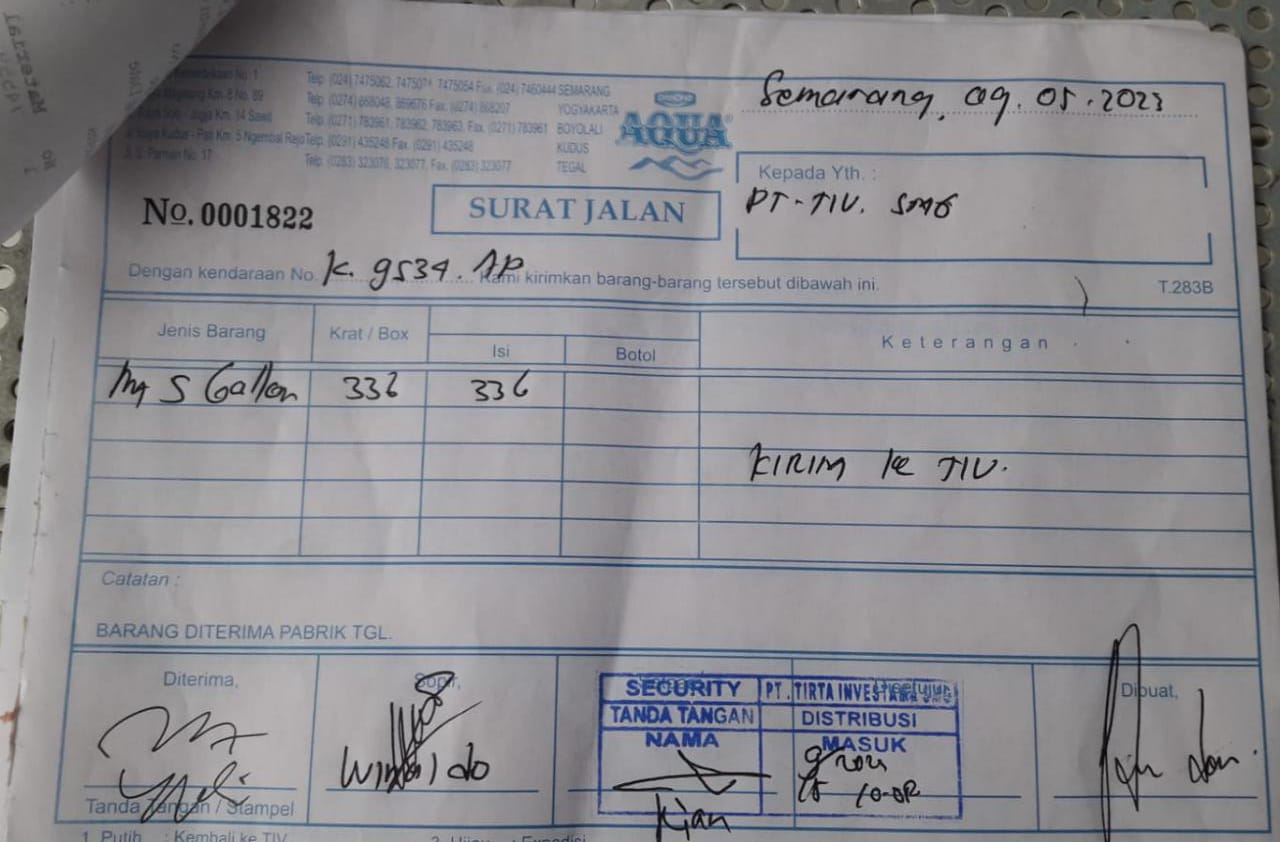 No. 1 Telp. (024) 7475062, 7475074, 7475054 Fax. (024) 7460444 SEMARANG
Km. 8 No. 89 Telp. (0274) 868048, 869676 Fax. (0274) 868207 YOGYAKARTA
Km. 14 Sawit Telp. (0271) 783961, 783962, 783963, Fax. (0271) 783961 BOYOLALI
Kudus - Pati Km. 5 Ngembal Rejo Telp. (0291) 435248 Fax. (0291) 435248 KUDUS
S. Parman No. 17 Telp. (0283) 323076, 323077, Fax. (0283) 323077 TEGAL
AQUA
Semarang, 09.05.2023
Kepada Yth. :
PT-TIV. SMG
No. 0001822
SURAT JALAN
Dengan kendaraan No. K. 9534. AP Kami kirimkan barang-barang tersebut dibawah ini.
T.283B
Jenis Barang Krat / Box Isi Botol Keterangan
5 Gallon 336 336
KIRIM KE TIV.
Catatan :
BARANG DITERIMA PABRIK TGL.
Diterima, Sopir, Dibuat,
SECURITY PT. TIRTA INVESTAMA
TANDA TANGAN DISTRIBUSI
NAMA MASUK
Kian
Tanda Tangan / Stampel
1. Putih : Kembali ke TIV
: Expedisi